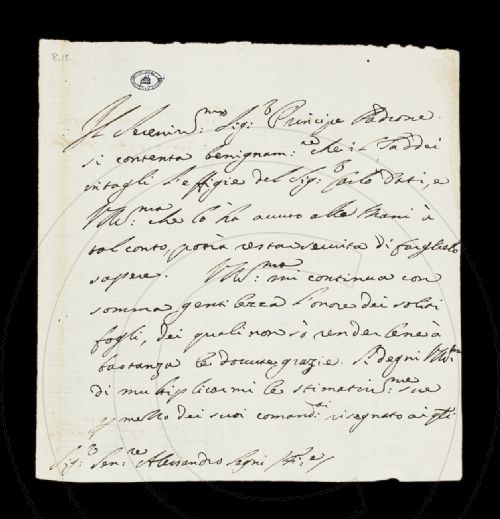 8.15.
Il Serenis:mo Sig:r Principe Padrone
si contenta benignam:te che il Taddei
intagli l'effigie del Sig:r Carlo Dati, e
VS Ill:ma che lo ha avuto alle mani à
tal conto, potrà restar servita di farglielo
sapere. VS Ill:ma mi continua con
somma gentilezza l'onore dei soliti
fogli, dei quali non sò renderlene à
bastanza le dovute grazie. Si degni VS Ill:ma
di multiplicarmi le stimatis:me sue
mello dei suoi comandi
Sig:r Sen:re Alessandro Segni